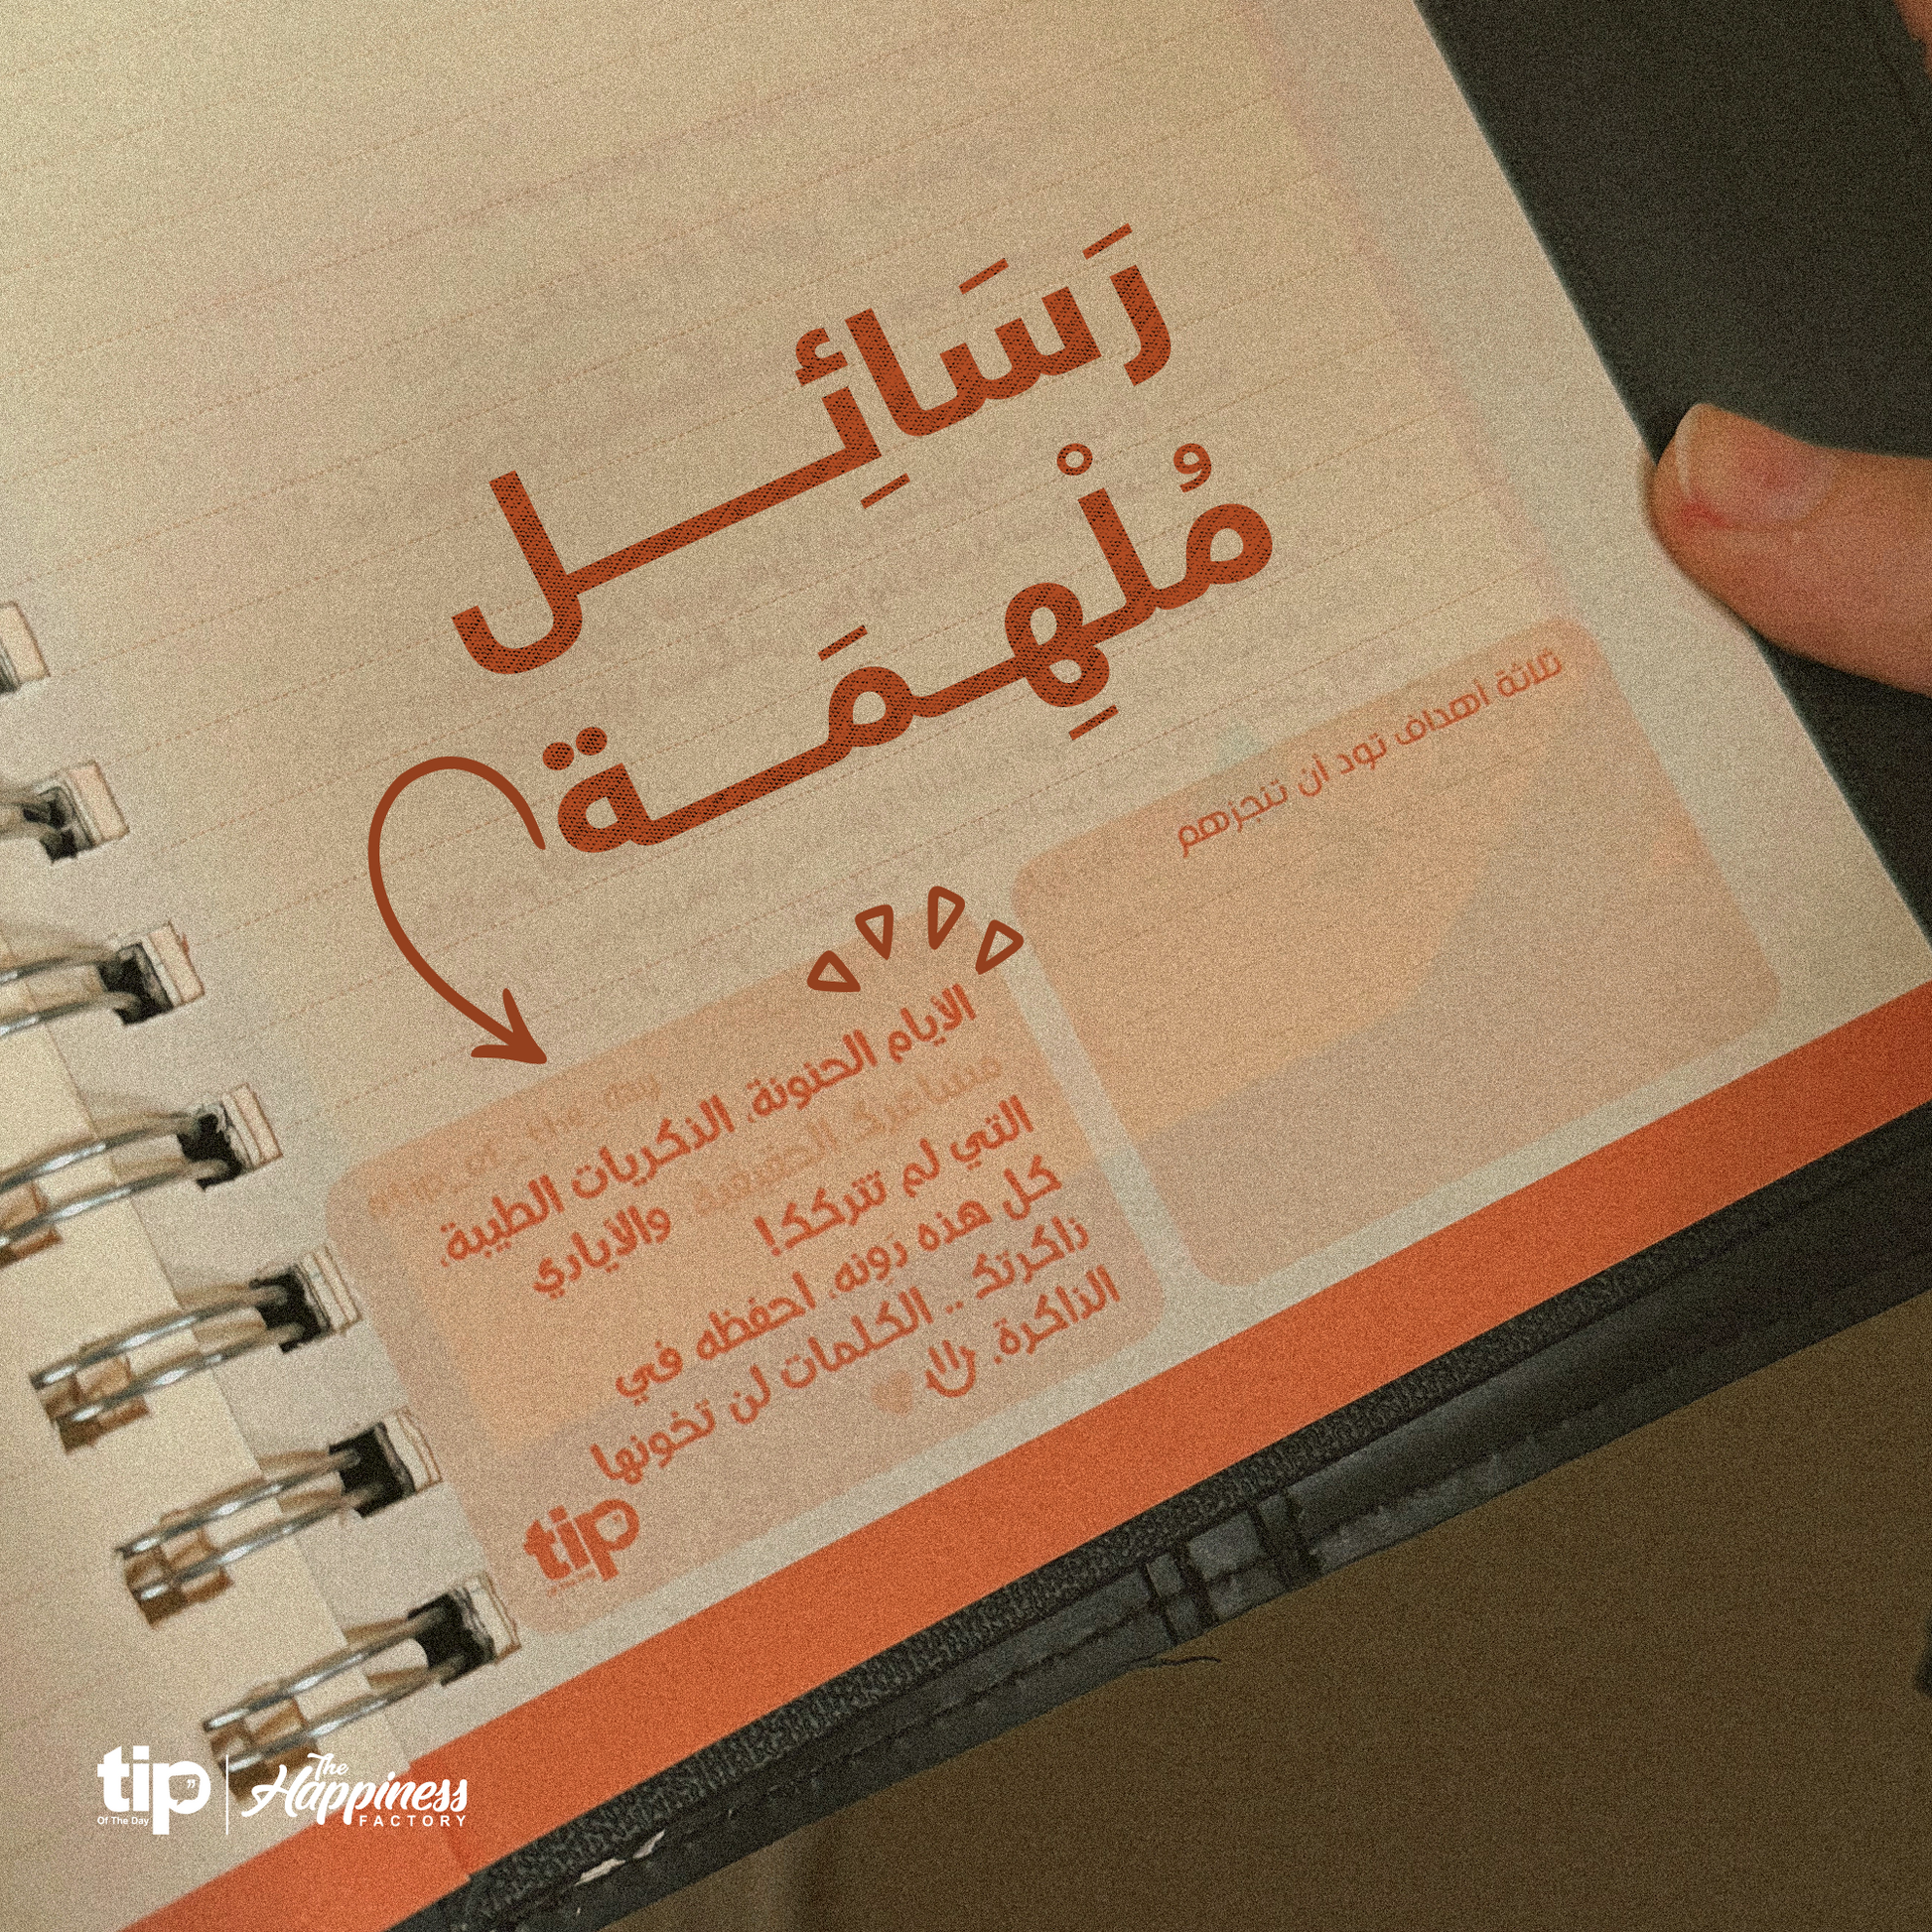 رَسَائِـــــل
مُلْهِـمَـــة
ثلاثة أهداف تود أن تنجزهم
الأيام الحنونة، الذكريات الطيبة،
مشاعرك الحقيقية، والأيادي
التي لم تتركك!
كل هذه دَونه، احفظه في
ذاكرتك .. الكلمات لن تخونها
الذاكرة.
tip
tip
Of The Day
The
Happiness
FACTORY